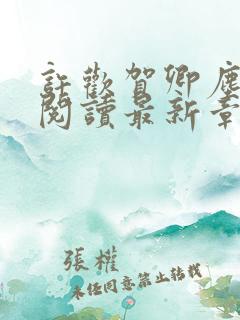 許歡賀卿塵
閱讀最新章
張權
未經同意禁止轉載